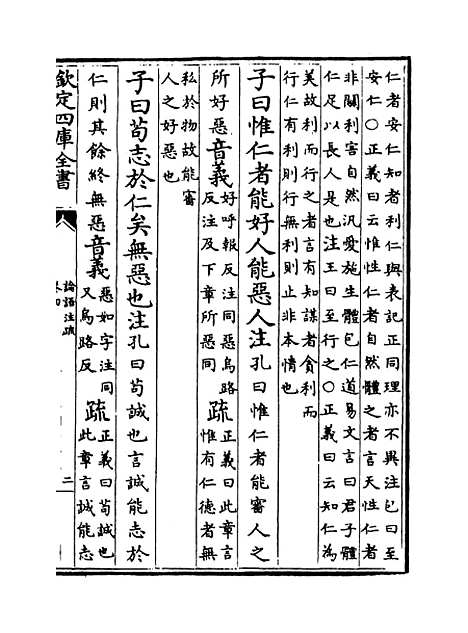 仁者安仁知者利仁與表記正同理亦不異注包曰至
安仁○正義曰云惟性仁者自然體之者言天性仁者
非關利害自然汎愛施生體包仁道易文言曰君子體
仁足以長人是也注王曰至行之○正義曰云知仁為
美故利而行之者言有知謀者貪利而
行仁有利則行無利則止非本情也
子曰惟仁者能好人能惡人注孔曰惟仁者能審人之
所好惡音義好呼報反注同惡烏路
反注及下章所惡同
疏正義曰此章言
惟有仁德者無
私於物故能審
人之好惡也
子曰苟志於仁矣無惡也注孔曰苟誠也言誠能志於
仁則其餘終無惡音義惡如字注同
又烏路反
疏正義曰苟誠也
此章言誠能志
欽定四庫全書
論語注疏
卷四
二